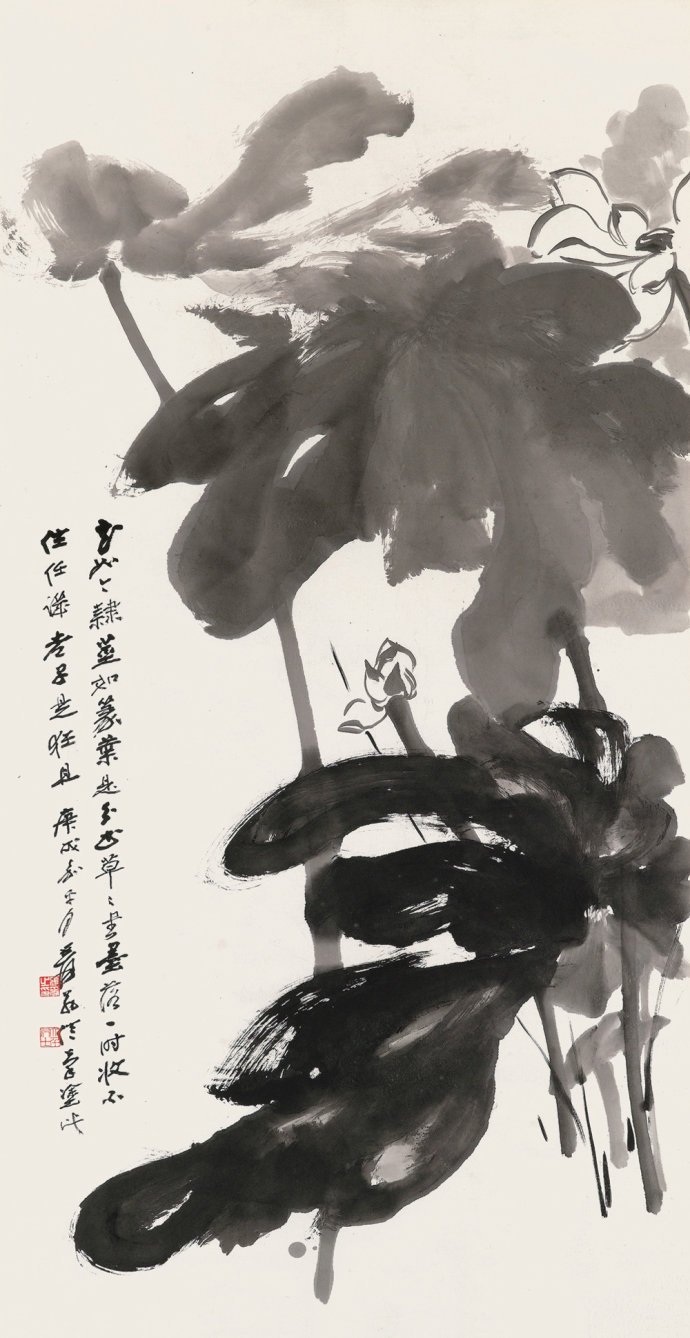 花如今隸莖如篆葉是分書草〻書墨落一時收不
住任譏老子是狂且 庚戌嘉平月 爰翁 塗此